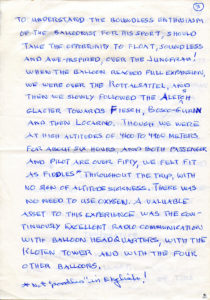 ②
TO UNDERSTAND THE BOUNDLESS ENTHUSIASM
OF THE BALLOONIST FOR HIS SPORT, SHOULD
TAKE THE OPPORTUNITY TO FLOAT, SOUNDLESS
AND AWE-INSPIRED, OVER THE JUNGFRAU!
WHEN THE BALLOON REACHED FULL EXPANSION,
WE WERE OVER THE ROTTALSATTEL, AND
THEN WE SLOWLY FOLLOWED THE ALETSCH
GLACIER TOWARDS FIESCH, BOSCO-GURIN
AND THEN LOCARNO. THOUGH WE WERE
AT HIGH ALTITUDES OF 4100 TO 4900 METERS
FOR ABOUT SIX HOURS, AND BOTH PASSENGER
AND PILOT ARE OVER FIFTY, WE FELT FIT
AS FIDDLES* THROUGHOUT THE TRIP, WITH
NO SIGN OF ALTITUDE SICKNESS. THERE WAS
NO NEED TO USE OXYGEN. A VALUABLE
ASSET TO THIS EXPERIENCE WAS THE CON-
TINUOUSLY EXCELLENT RADIO COMMUNICATION
WITH BALLOON HEADQUARTERS, WITH THE
KLOTEN TOWER AND WITH THE FOUR
OTHER BALLOONS.
* Not in English!